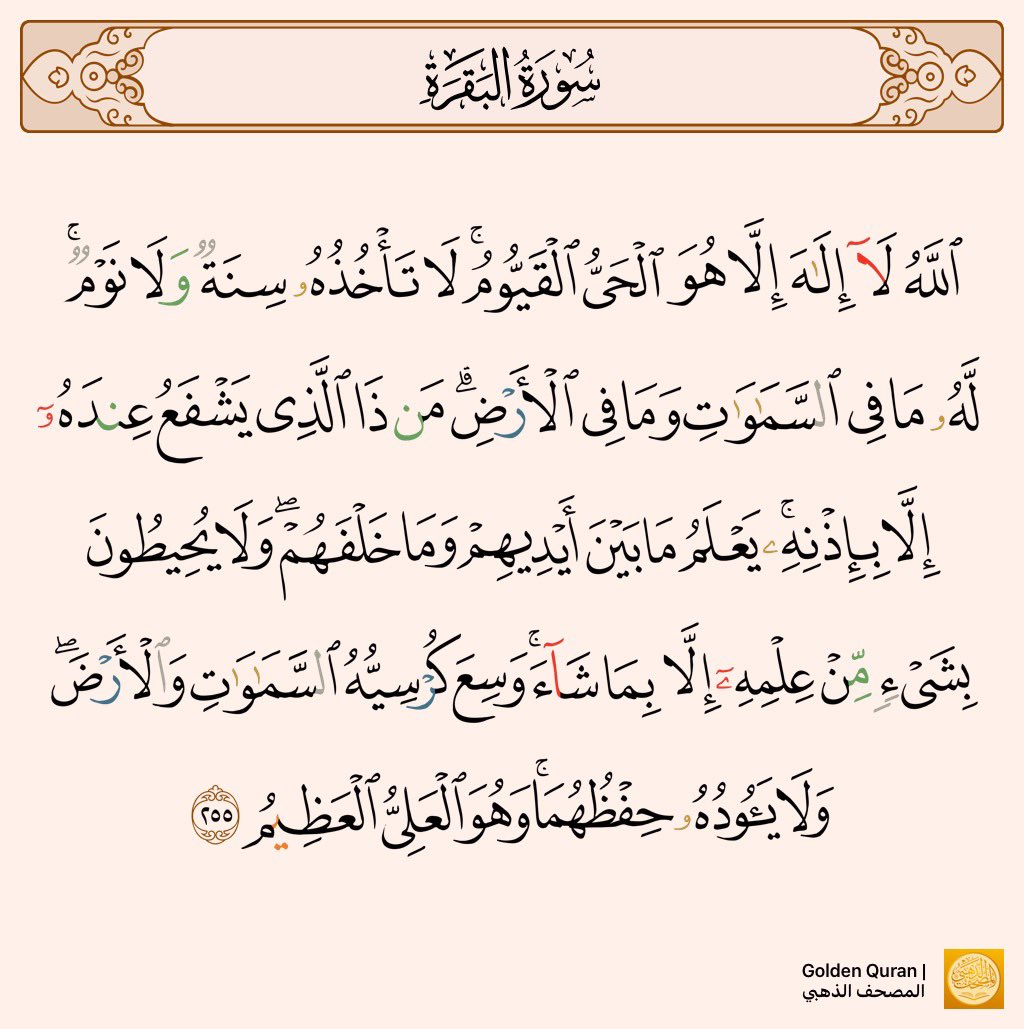 سُورَةُ الْبَقَرَةِ
ٱللَّهُ لَآ إِلَـٰهَ إِلَّا هُوَ ٱلْحَىُّ ٱلْقَيُّومُ ۚ لَا تَأْخُذُهُۥ سِنَةٌ وَلَا نَوْمٌ ۚ
لَّهُۥ مَا فِى ٱلسَّمَـٰوَٰتِ وَمَا فِى ٱلْأَرْضِ ۗ مَن ذَا ٱلَّذِى يَشْفَعُ عِندَهُۥٓ
إِلَّا بِإِذْنِهِۦ ۚ يَعْلَمُ مَا بَيْنَ أَيْدِيهِمْ وَمَا خَلْفَهُمْ ۖ وَلَا يُحِيطُونَ
بِشَىْءٍ مِّنْ عِلْمِهِۦٓ إِلَّا بِمَا شَآءَ ۚ وَسِعَ كُرْسِيُّهُ ٱلسَّمَـٰوَٰتِ وَٱلْأَرْضَ ۖ
وَلَا يَـُٔودُهُۥ حِفْظُهُمَا ۚ وَهُوَ ٱلْعَلِىُّ ٱلْعَظِيمُ ٢٥٥
Golden Quran |
المصحف الذهبي
المصحف الذهبي